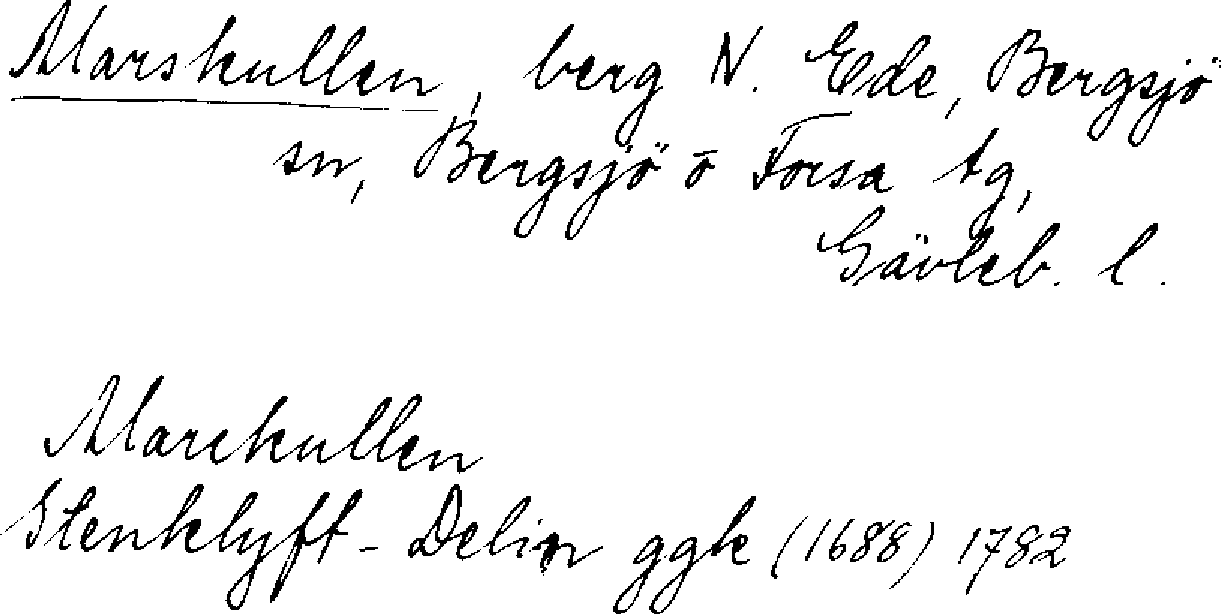 Marskullen, berg N. Ede, Bergsjö
sn, Bergsjö o Forsa tg,
Gävleb. l.
Marekullen
Stenklyft - Delin ggk (1688) 1782